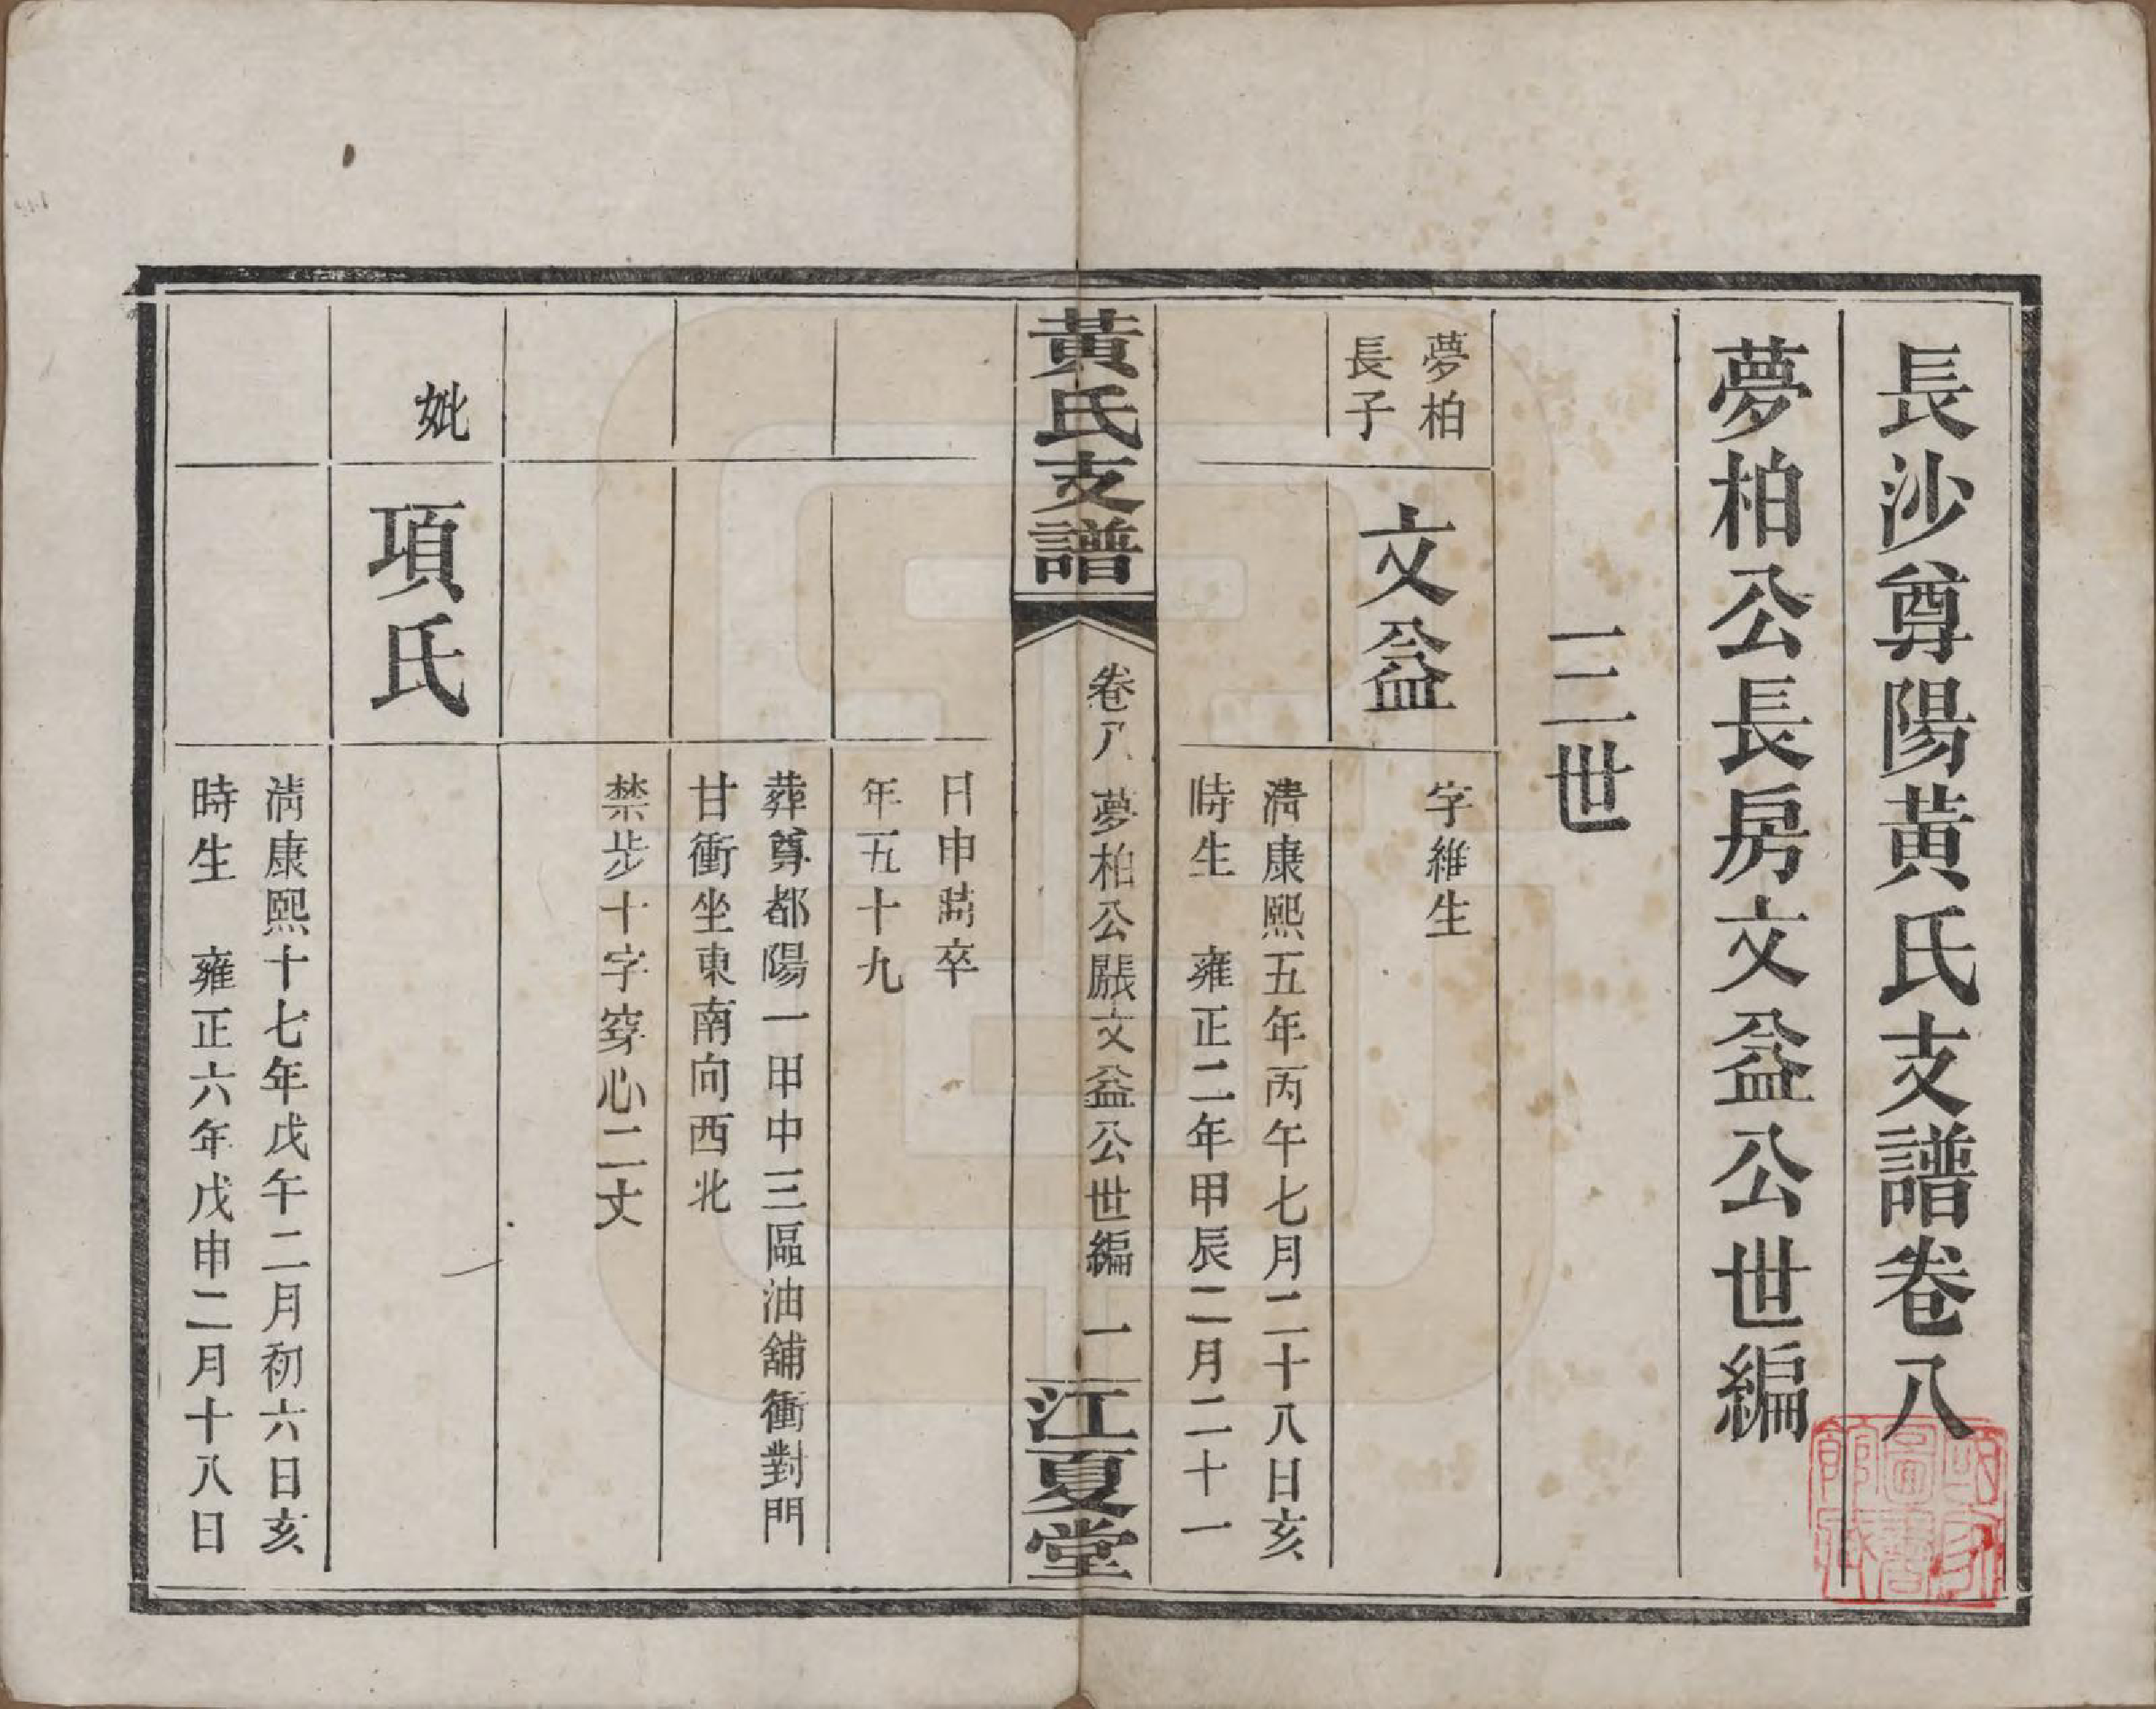 長沙尊陽黃氏支譜卷八
夢柏公長房文益公世編
三世
夢柏
長子
文益
字維生
淸康熙五年丙午七月二十八日亥
時生　雍正二年甲辰二月二十一
黃氏支譜
卷八　夢柏公長房文益公世編　一
江夏堂
日申時卒
年五十九
葬尊都陽一甲中三區油舖衝對門
甘衝坐東南向西北
禁步十字穿心二丈
妣
項氏
淸康熙十七年戊午二月初六日亥
時生　雍正六年戊申二月十八日